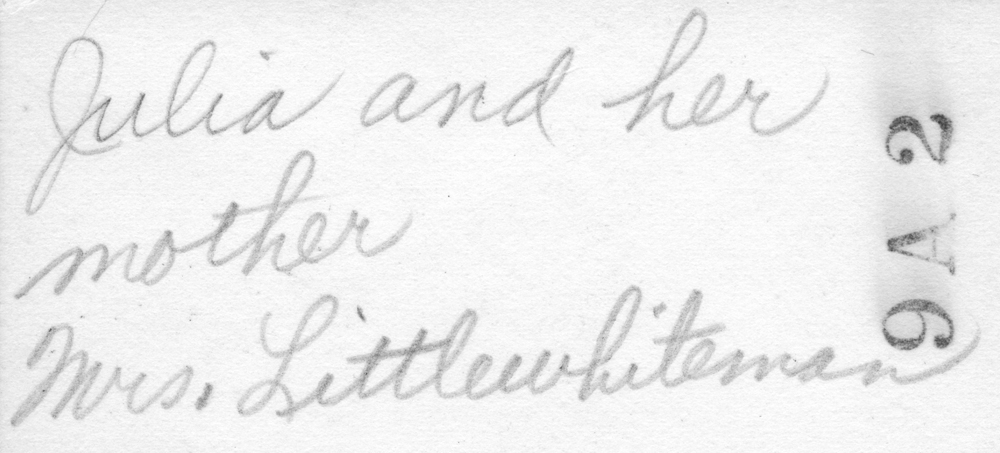 Julia and her
mother
Mrs. Littlewhiteman
9A2